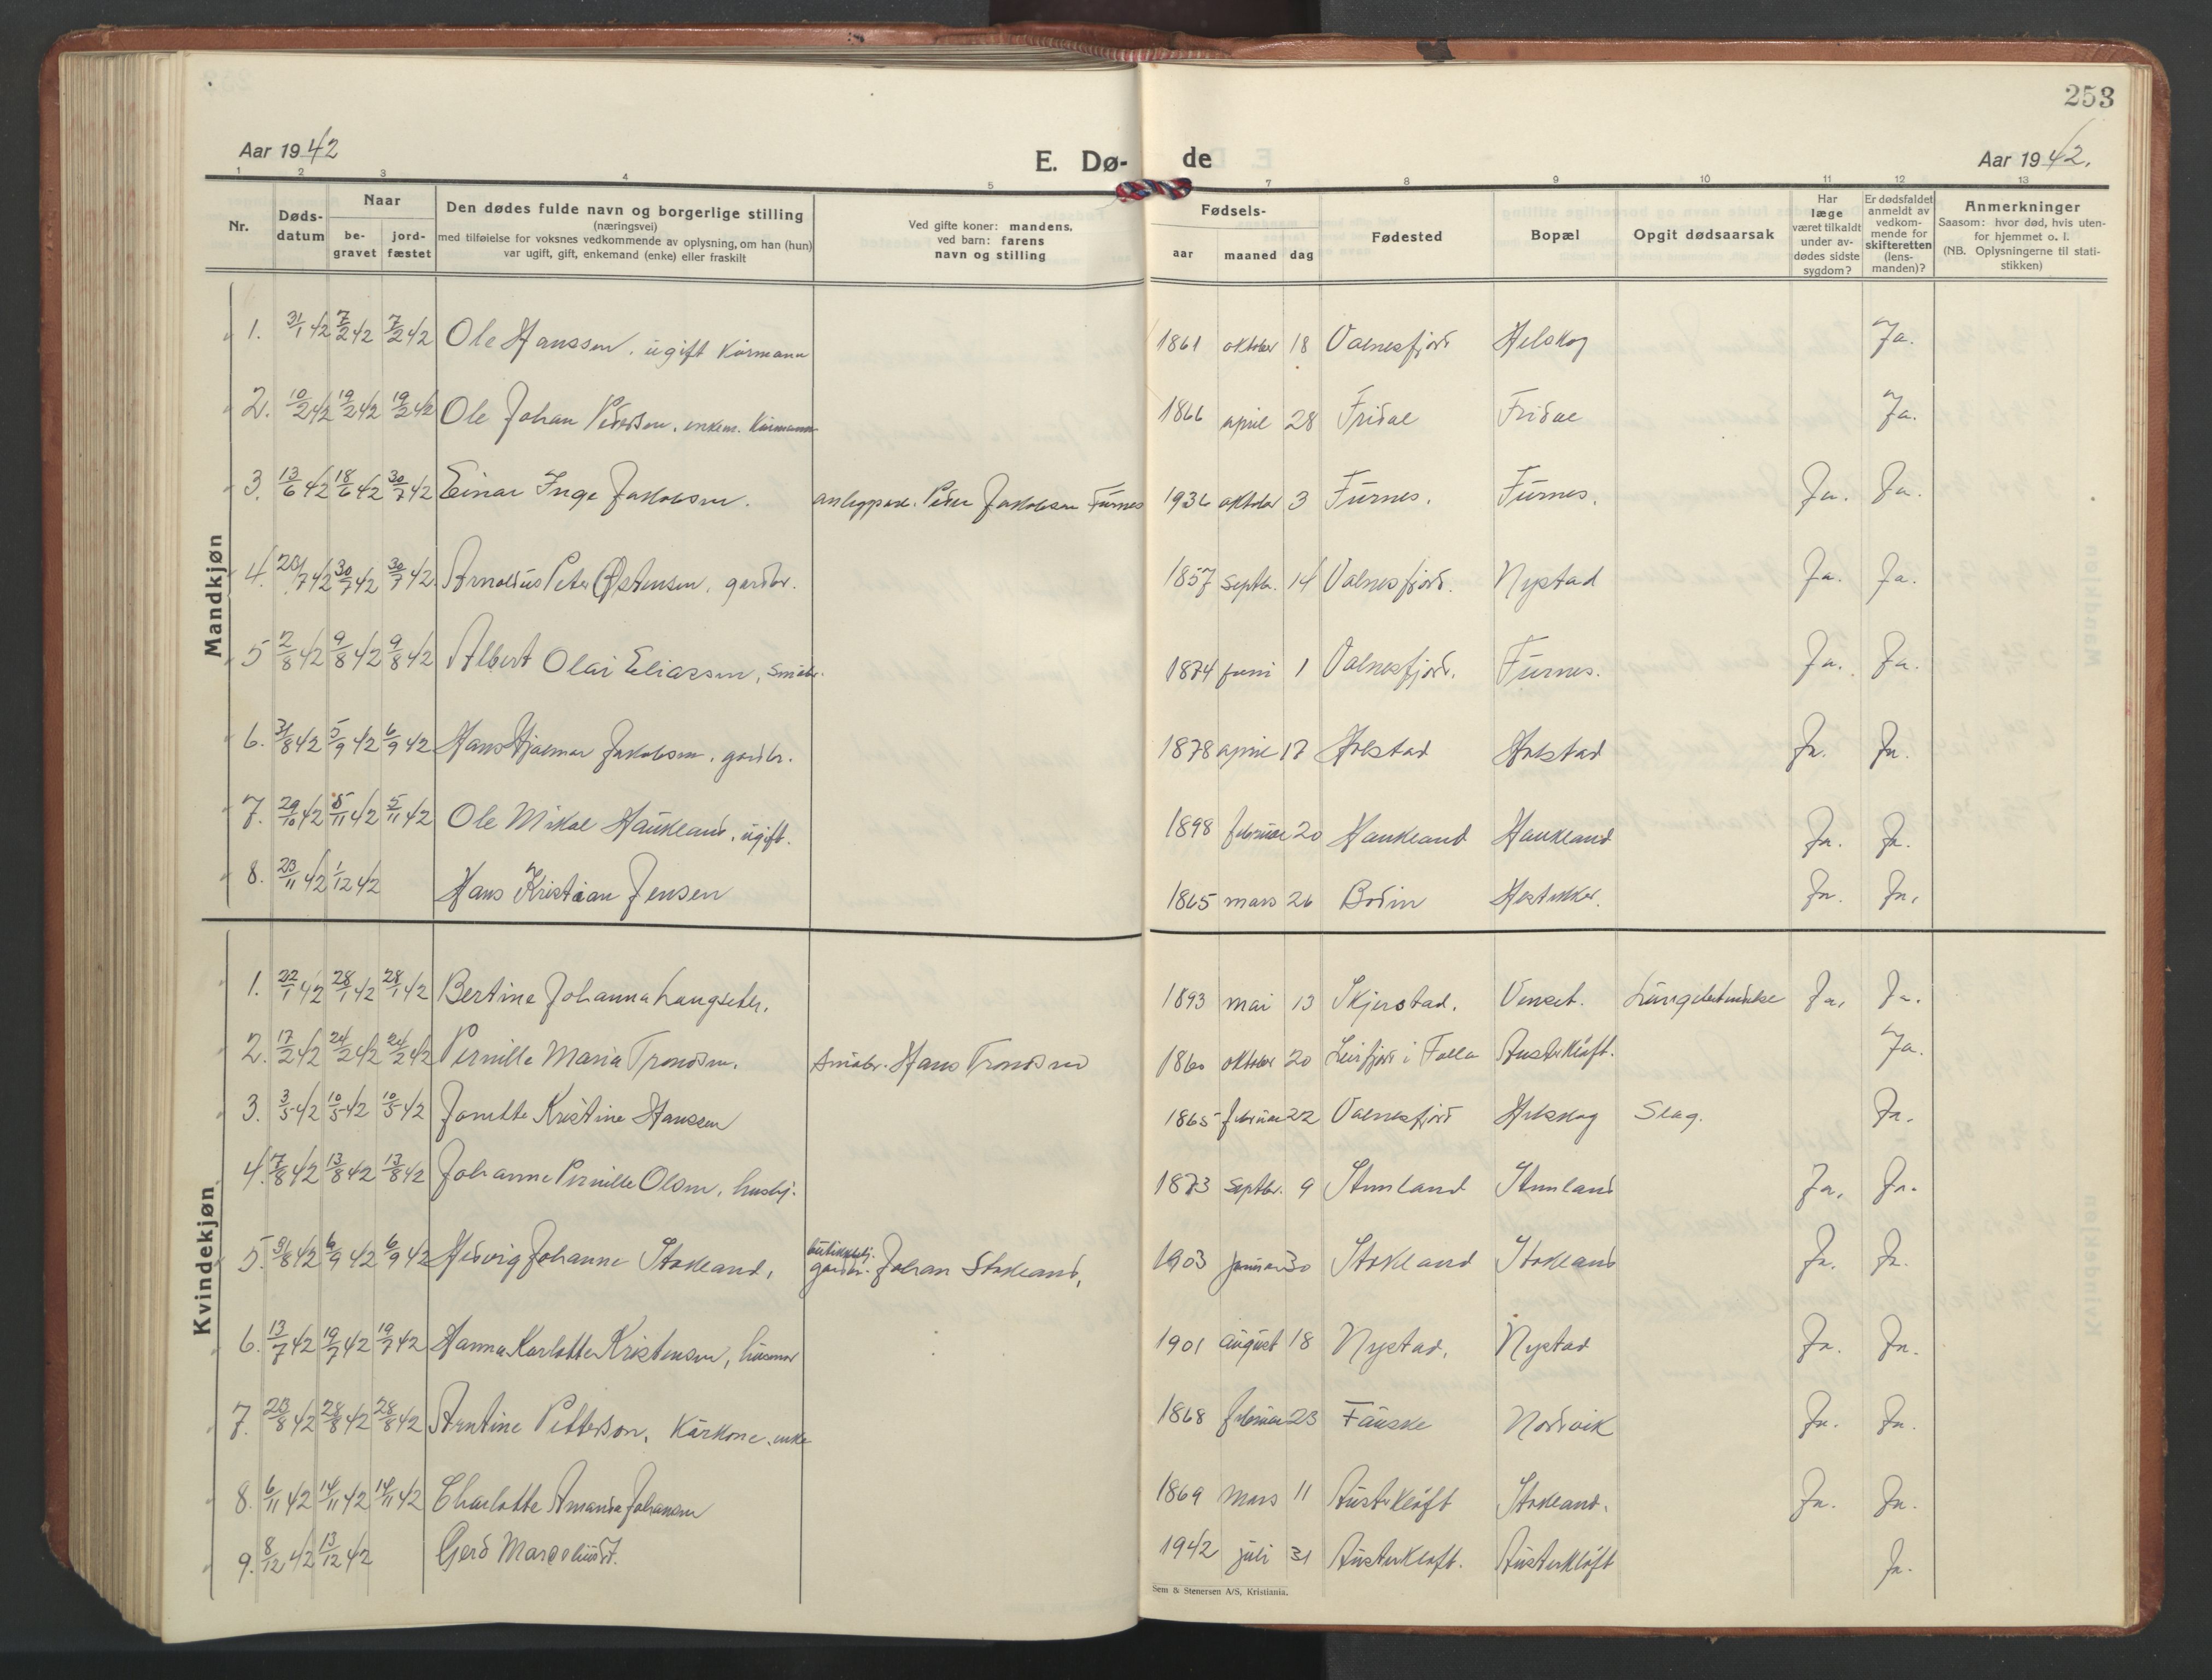 253
Aar 1942
E. Dø- de
Aar 1942.
1 2 3 4 5 7 8 9 10 11 12 13
Nr.
Døds-datum
Naar
be-gravet
jord-fæstet
Den dødes fulde navn og borgerlige stilling
(næringsvei)
med tilføielse for voksnes vedkommende av oplysning, om han (hun)
var ugift, gift, enkemand (enke) eller fraskilt
Ved gifte koner: mandens,
ved barn: farens
navn og stilling
Fødsels-
aar maaned dag
Fødested
Bopæl
Opgit dødsaarsak
Har læge været tilkaldt under av-dødes sidste sygdom?
Er dødsfaldet anmeldt av vedkom-mende for skifteretten (lens-manden)?
Anmerkninger
Saasom: hvor død, hvis uten-
for hjemmet o. l.
(NB. Oplysningerne til stati-
stikken)
Mandkjøn
1. 31/1 42 7/2 42 7/2 42 Ole Hanssen, ugift kårmann 1861 oktober 18 Valnesfjord Helskog Ja.
2. 10/2 42 19/2 42 19/2 42 Ole Johan Pedersen, enkem. kårmann 1866 april 28 Fridal Fridal Ja.
3. 13/6 42 18/6 42 30/7 42 Einar Inge Jakobsen. Peder Jakobsen Furnes 1936 oktober 3 Furnes. Furnes. Ja. Ja.
4. 20/7 42 30/7 42 30/7 42 Arnoldus Peter Østensen, gardbr. 1857 septbr. 14 Valnesfjord. Nystad Ja. Ja.
5 2/8 42 9/8 42 9/8 42 Albert Olai Eliassen, småbr. 1874 juni 1 Valnesfjord. Furnes. Ja. Ja.
6. 31/8 42 5/9 42 6/9 42 Hans Hjalmar Jakobsen, gardbr. 1878 april 17 Holstad Holstad Ja. Ja.
7. 29/10 42 5/11 42 5/11 42 Ole Mikal Haukland, ugift. 1898 februar 20 Haukland Haukland Ja. Ja.
8. 23/11 42 1/12 42 Hans Kristian Jensen 1865 mars 26 Bodin Ja. Ja.
Kvindekjøn
1. 22/1 42 28/1 42 28/1 42 Bertine Johanna Langseter. 1893 mai 13 Skjerstad. Venset. Lungebetendelse Ja. Ja.
2. 17/2 42 24/2 42 24/2 42 Pernille Maria Trondsen. Småbr. Hans Trondsen 1860 oktober 20 Leirfjord i Folla Austerkløft. Ja.
3. 3/5 42 10/5 42 10/5 42 Janette Kristine Hanssen 1865 februar 22 Valnesfjord Helskog Slag. Ja.
4. 7/8 42 13/8 42 13/8 42 Johanne Pernille Olsen, hushj. 1873 septbr. 9 Stemland Stemland Ja. Ja.
5. 31/8 42 6/9 42 6/9 42 Hedvig Johanne Stokland, gardbr. Johan Stokland, 1903 januar 30 Stokland Stokland Ja. Ja.
6. 13/7 42 19/7 42 19/7 42 Hanna Karlotte Kristensen, husmor 1901 august 18 Nystad. Nystad Ja. Ja.
7. 23/8 42 28/8 42 28/8 42 Arntine Petterson, kårkone, enke 1868 februar 23 Fauske Nordvik Ja. Ja.
8. 6/11 42 14/11 42 14/11 42 Charlotte Amanda Johansen 1869 mars 11 Austerkløft Stokland. Ja. Ja.
9. 8/12 42 13/12 42 Gerd 1942 juli 31 Austerkløft. Austerkløft Ja.
Sem & Stenersen A/S, Kristiania.